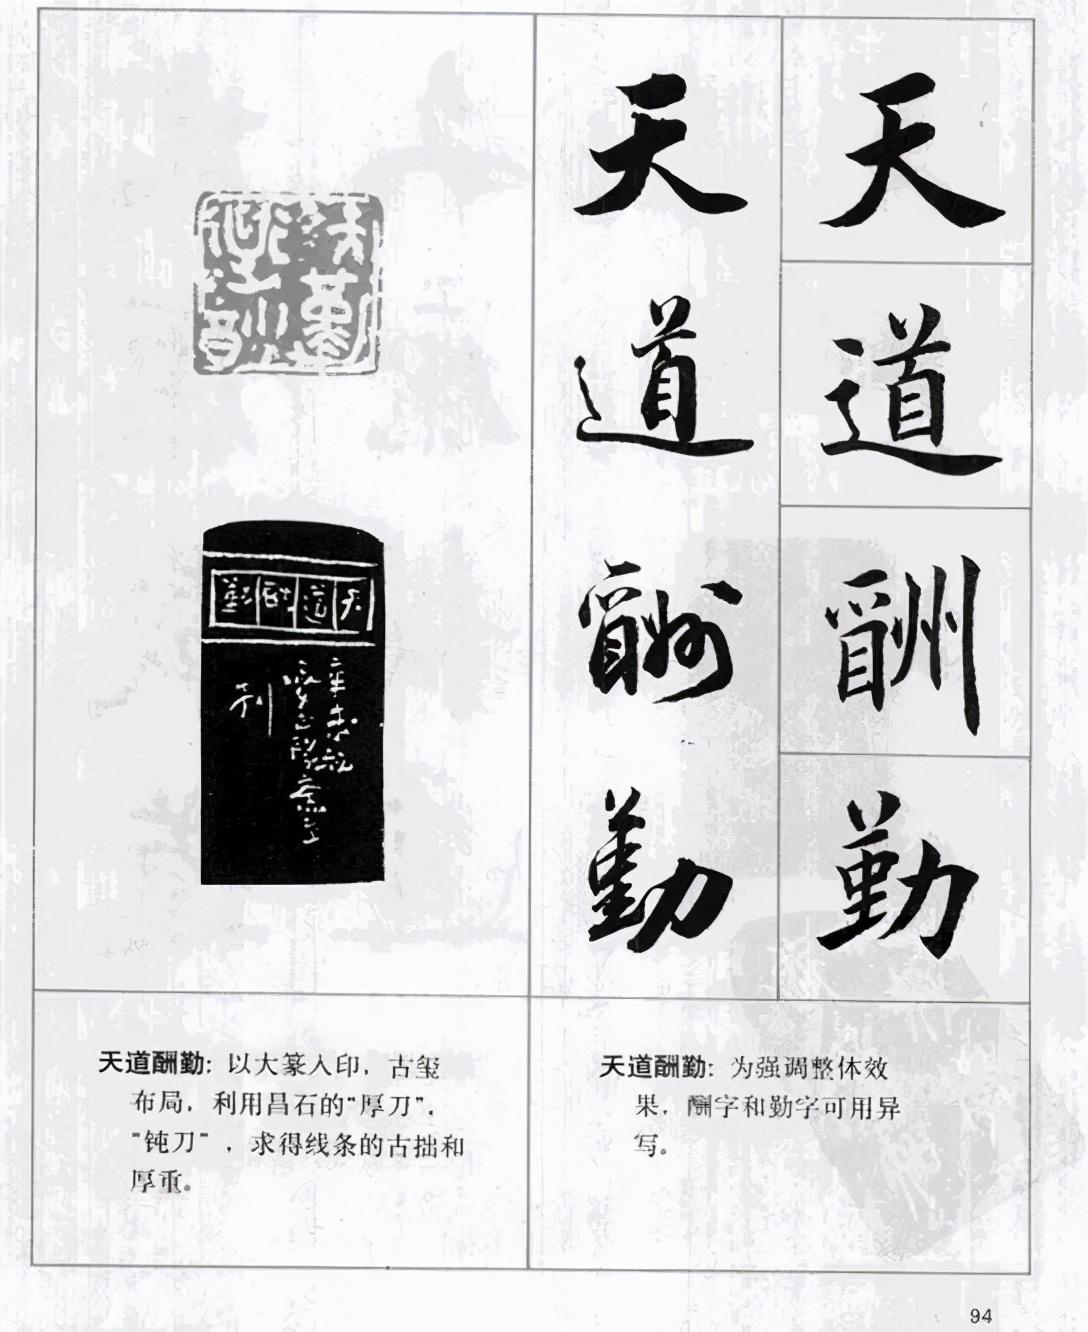 天
道
酬
勤
天
道
酬
勤
天道酬勤
天道酬勤
辛未秋
刊
天道酬勤：以大篆入印，古玺
布局，利用昌石的“厚刀”、
“钝刀”，求得线条的古拙和
厚重。
天道酬勤：为强调整体效
果，酬字和勤字可用异
写。
94